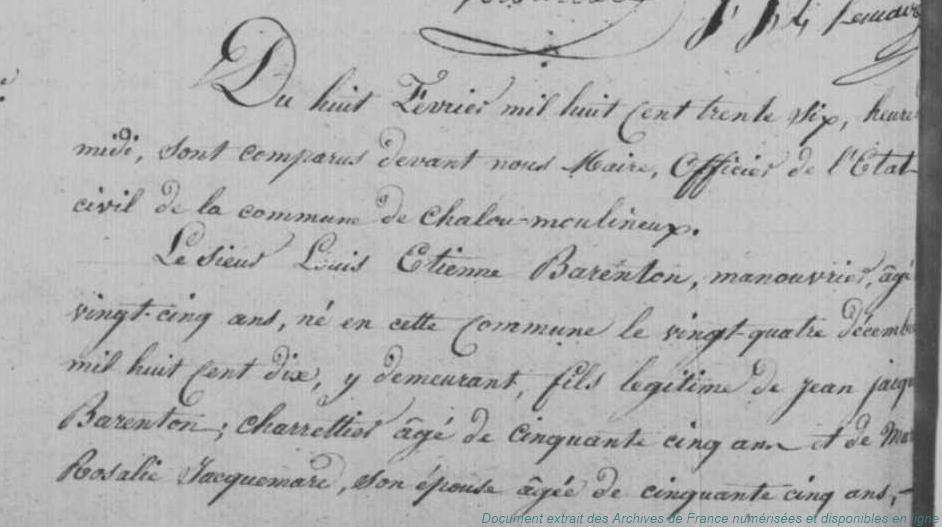 Du huit Février mil huit Cent trente Six, heure
midi, sont comparus devant nous Maire, Officier de l'Etat-
civil de la commune de chalou-moulineux.
Le Sieur Louis Etienne Barenton, manouvrier, âgé
vingt-cinq ans, né en cette Commune le vingt-quatre décemb
mil huit Cent dix, y demeurant, fils legitime de jean jacq
Barenton, charrettier âgé de cinquante cinq ans et de Ma
Rosalie Jacquemard, son épouse âgée de cinquante cinq ans,-
Document extrait des Archives de France numérisées et disponibles en ligne